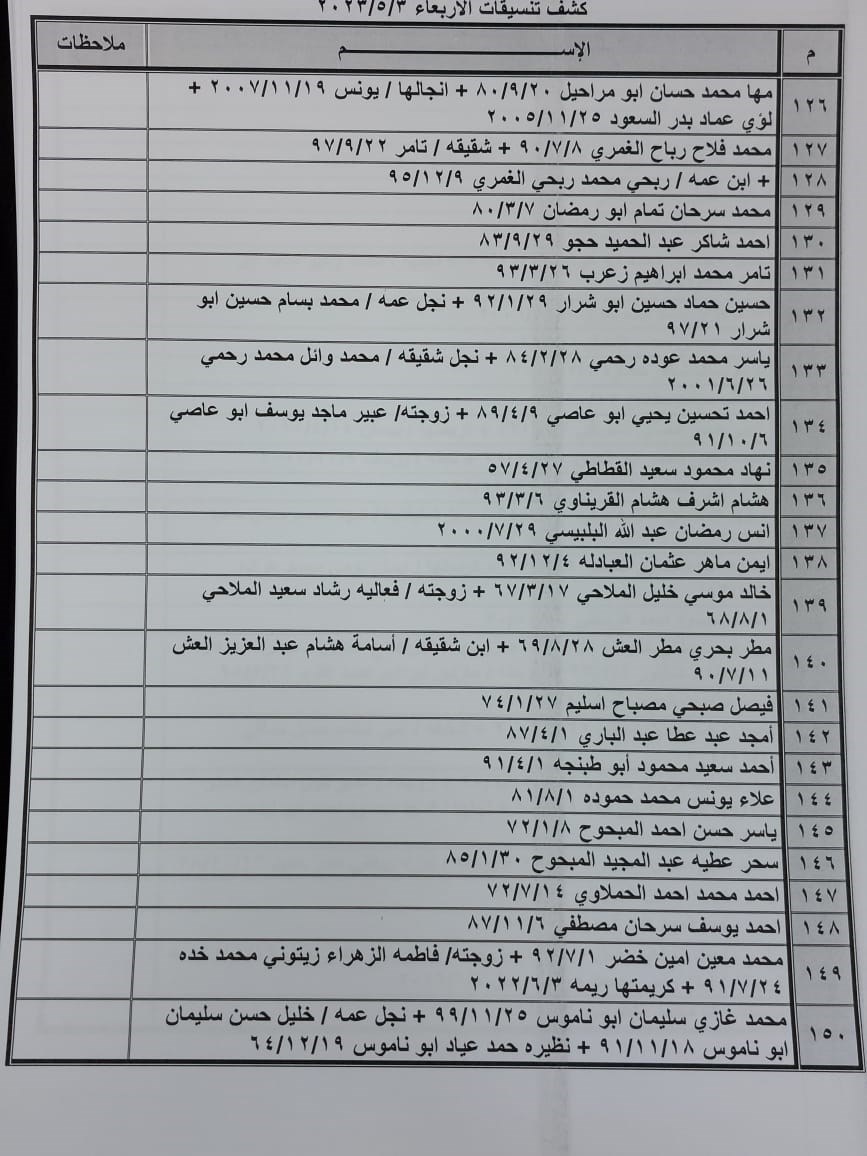 كشف تنسيقات الاربعاء ٢٠٢٣/٥/٣
م الإســـــــــــــم ملاحظات
١٢٦ مها محمد حسان ابو مراحيل ٨٠/٩/٢٠ + انجالها / يونس ٢٠٠٧/١١/١٩ +
لؤي عماد بدر السعود ٢٠٠٥/١١/٢٥
١٢٧ محمد فلاح رباح الغمري ٩٠/٧/٨ + شقيقه / تامر ٩٧/٩/٢٢
١٢٨ + ابن عمه / ربحي محمد ربحي الغمري ٩٥/١٢/٩
١٢٩ محمد سرحان تمام ابو رمضان ٨٠/٣/٧
١٣٠ احمد شاكر عبد الحميد حجو ٨٣/٩/٢٩
١٣١ تامر محمد ابراهيم زعرب ٩٣/٣/٢٦
١٣٢ حسين حماد حسين ابو شرار ٩٢/١/٢٩ + نجل عمه / محمد بسام حسين ابو
شرار ٩٧/٢١
١٣٣ ياسر محمد عوده رحمي ٨٤/٢/٢٨ + نجل شقيقه / محمد وائل محمد رحمي
٢٠٠١/٦/٢٦
١٣٤ احمد تحسين يحيي ابو عاصي ٨٩/٤/٩ + زوجته/ عبير ماجد يوسف ابو عاصي
٩١/١٠/٦
١٣٥ نهاد محمود سعيد القطاطي ٥٧/٤/٢٧
١٣٦ هشام اشرف هشام القريناوي ٩٣/٣/٦
١٣٧ انس رمضان عبد الله البلبيسي ٢٠٠٠/٧/٢٩
١٣٨ ايمن ماهر عثمان العبادله ٩٢/١٢/٤
١٣٩ خالد موسي خليل الملاحي ٦٧/٣/١٧ + زوجته / فعاليه رشاد سعيد الملاحي
٦٨/٨/١
١٤٠ مطر بحري مطر العش ٦٩/٨/٢٨ + ابن شقيقه / أسامة هشام عبد العزيز العش
٩٠/٧/١١
١٤١ فيصل صبحي مصباح اسليم ٧٤/١/٢٧
١٤٢ أمجد عبد عطا عبد الباري ٨٧/٤/١
١٤٣ أحمد سعيد محمود أبو طبنجه ٩١/٤/١
١٤٤ علاء يونس محمد حموده ٨١/٨/١
١٤٥ ياسر حسن احمد المبحوح ٧٢/١/٨
١٤٦ سحر عطيه عبد المجيد المبحوح ٨٥/١/٣٠
١٤٧ احمد محمد احمد الحملاوي ٧٢/٧/١٤
١٤٨ احمد يوسف سرحان مصطفي ٨٧/١١/٦
١٤٩ محمد معين امين خضر ٩٢/٧/١ + زوجته/ فاطمه الزهراء زيتوني محمد خده
٩١/٧/٢٤ + كريمتها ريمه ٢٠٢٢/٦/٣
١٥٠ محمد غازي سليمان ابو ناموس ٩٩/١١/٢٥ + نجل عمه / خليل حسن سليمان
ابو ناموس ٩١/١١/١٨ + نظيره حمد عياد ابو ناموس ٦٤/١٢/١٩